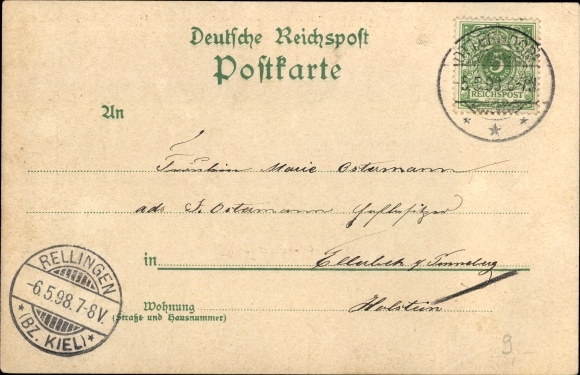 Deutsche Reichspost
Postkarte
5
REICHSPOST
An
Fräulein Marie Ostermann
ads J. Ostermann Hufbesitzer
in Ellerbek p/ Pinneberg
Wohnung Holstein
(Straße und Hausnummer)
RELLINGEN
-6.5.98.7-8V.
*(BZ. KIEL)*
9,-